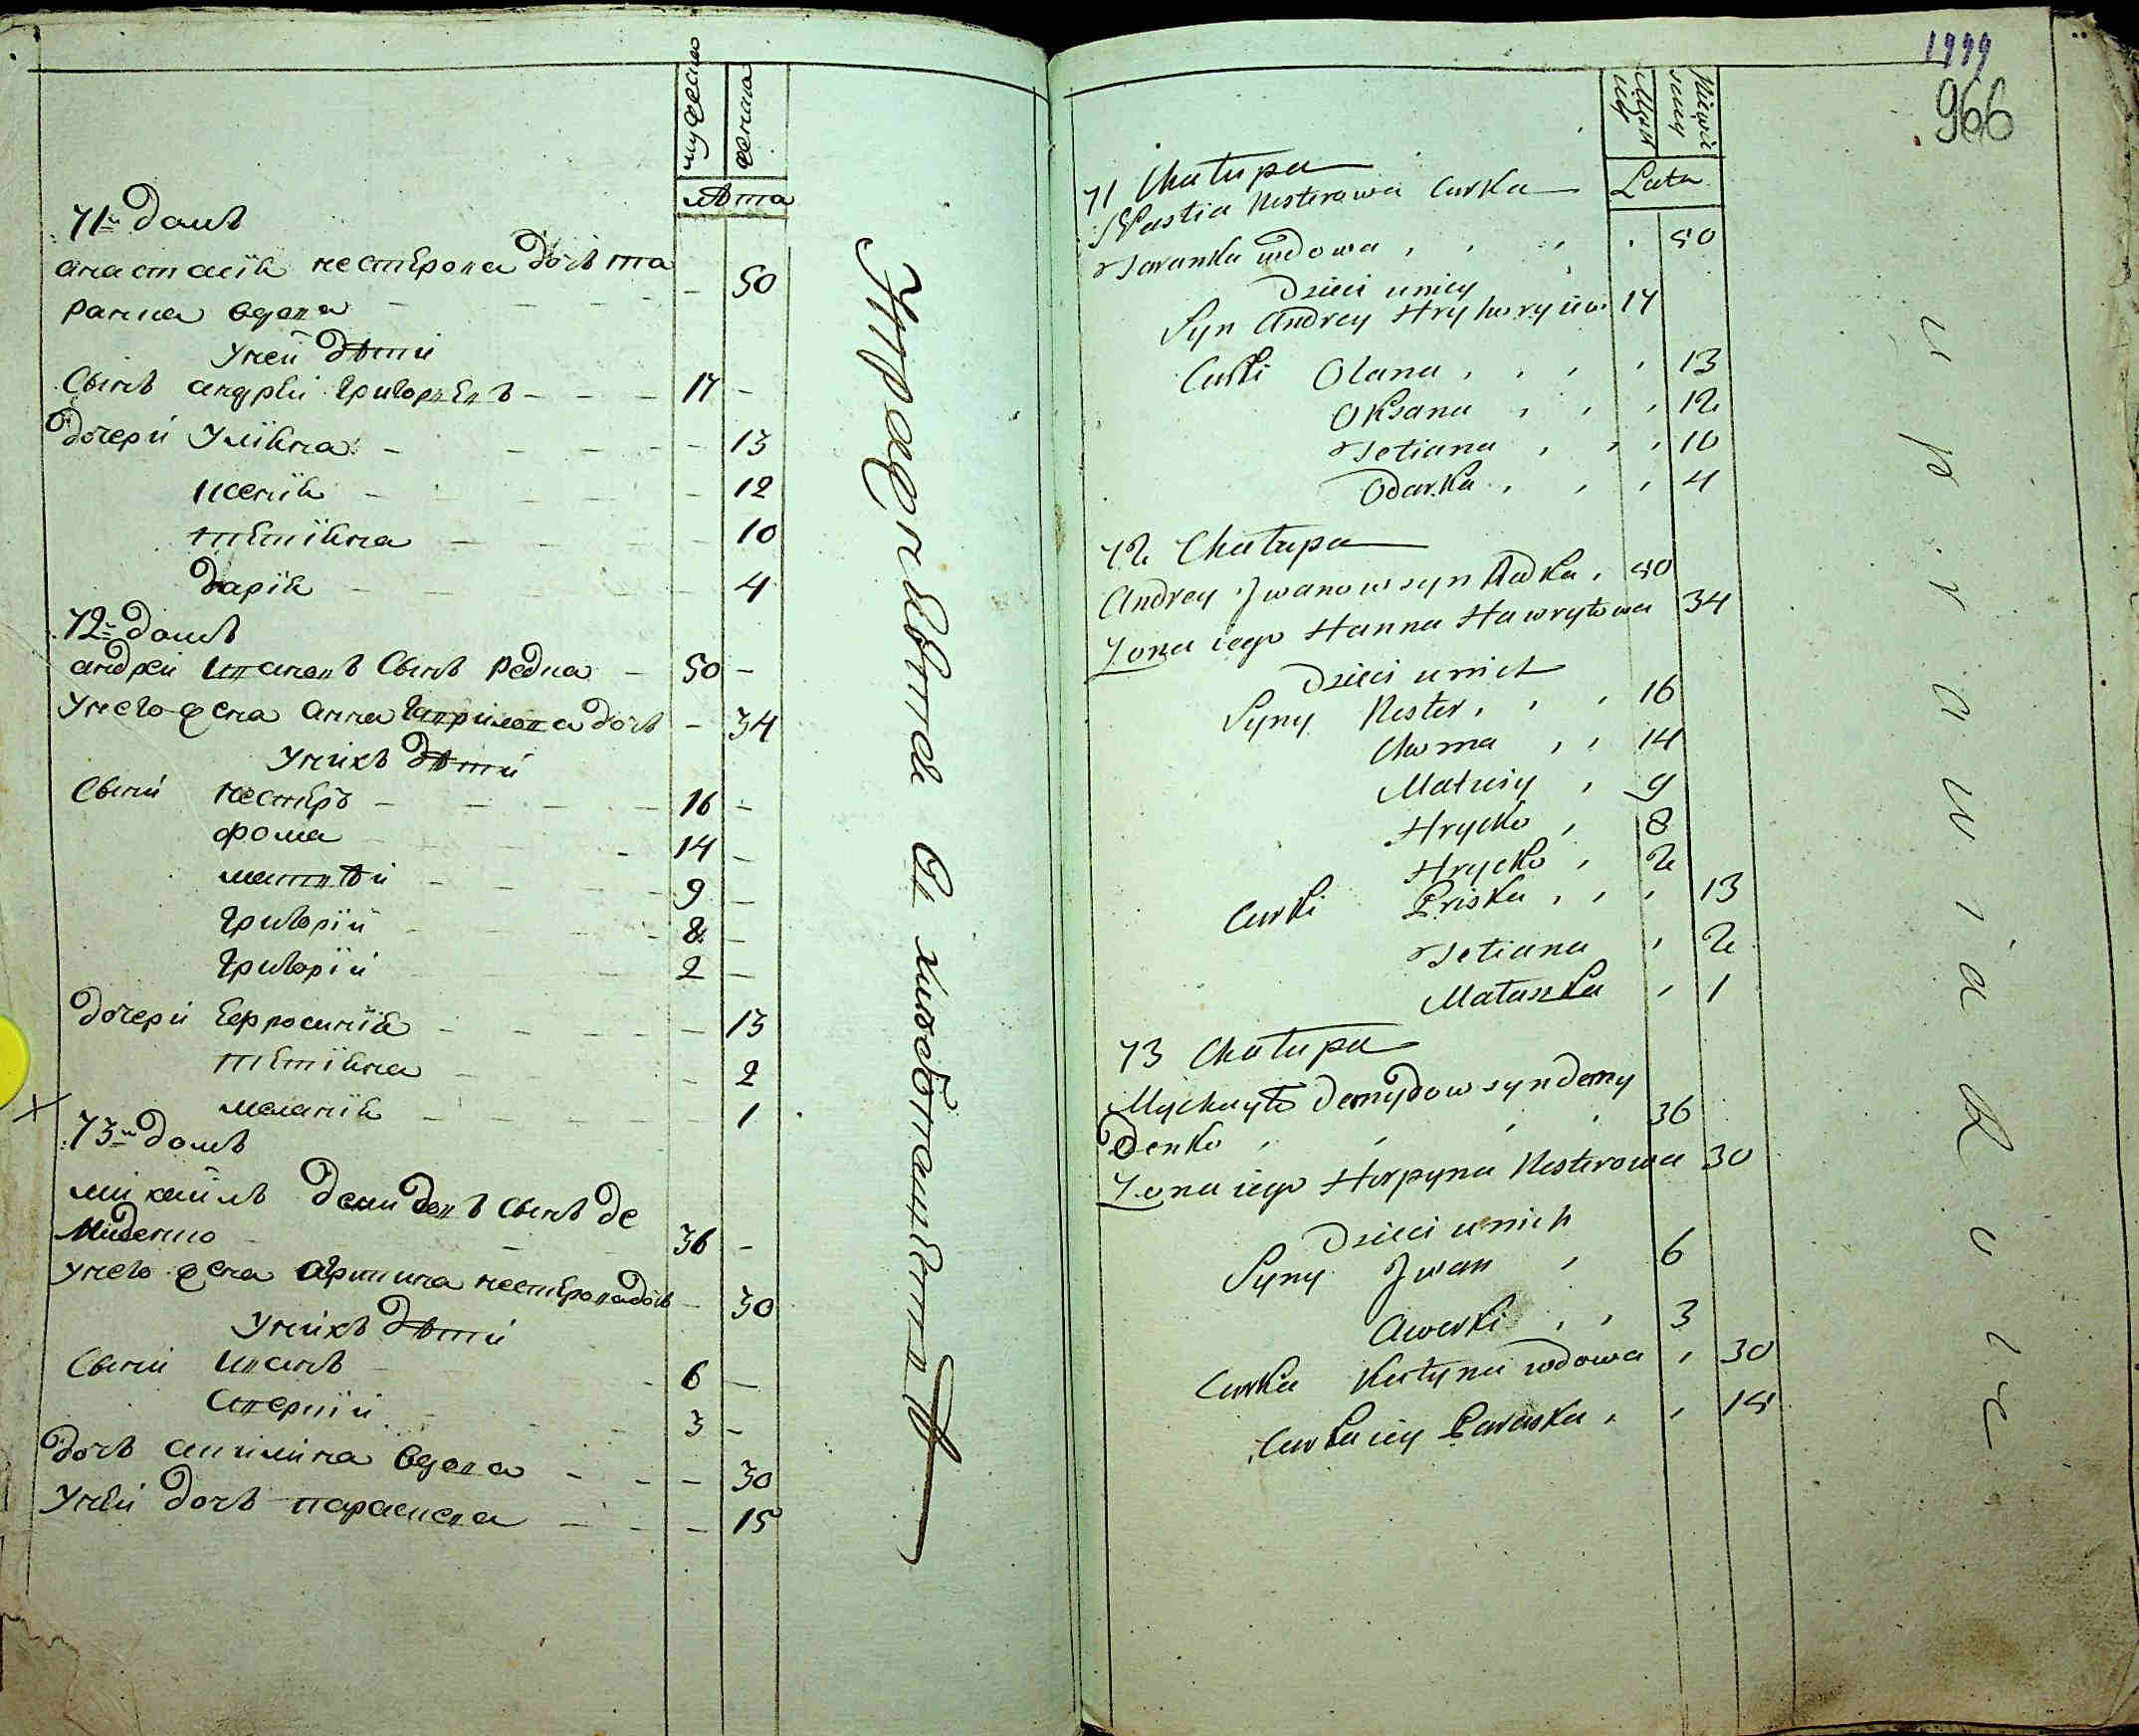 мужеска
женска
лѣта
71й домъ
анастасия нестерова дочь та
ранка вдова - 50
у ней дѣти
Сынъ андрей григорьевъ - 17 -
дочери Улияна - 13
ксения - 12
тетияна - 10
дария - 4
72й домъ
андрей ивановъ Сынъ редка - 50 -
У него жена анна гаврилова дочь - 34
У нихъ дѣти
Сыни нестеръ - 16 -
фома 14 -
матвѣй - 9 -
григорій - 8 -
григорій 2 -
дочери Ефросиния - 13
тетияна - 2
мелания - 1
73й домъ
михаилъ демидовъ Сынъ де
миденко 36 -
У него жена Агрипина нестерова дочь - 30
У нихъ дѣти
Сыни иванъ 6 -
Аверкій 3 -
дочь акилина вдова - 30
У ней дочь параскева - 15
Учрежденной
1999
966
Męzc
kich
Niewie
scich
Lata
71 Chałupa
Nastia Nesterowa Curka
Taranka wdowa 50
Dzieci u niey
Syn Andrey Hryhoryiow 17
Curki Olana 13
Oksana 12
Tetiana 10
Odarka 4
72 Chałupa
Andrey Jwanow syn Redka 50
Zona iego Hanna Hawryłowa 34
Dzieci u nich
Syny Nester 16
Choma 14
Matwiy 9
Hrycko 8
Hrycko 2
Curki Priska 13
Tetiana 2
Małaszka 1
73 Chałupa
Mychayło Demydow syn Demy
Denko 36
Zona iego Horpyna Nesterowa 30
Dzieci u nich
Syny Jwan 6
Awerki 3
Curka Kułyna wdowa 30
Curka iey Paraska 15